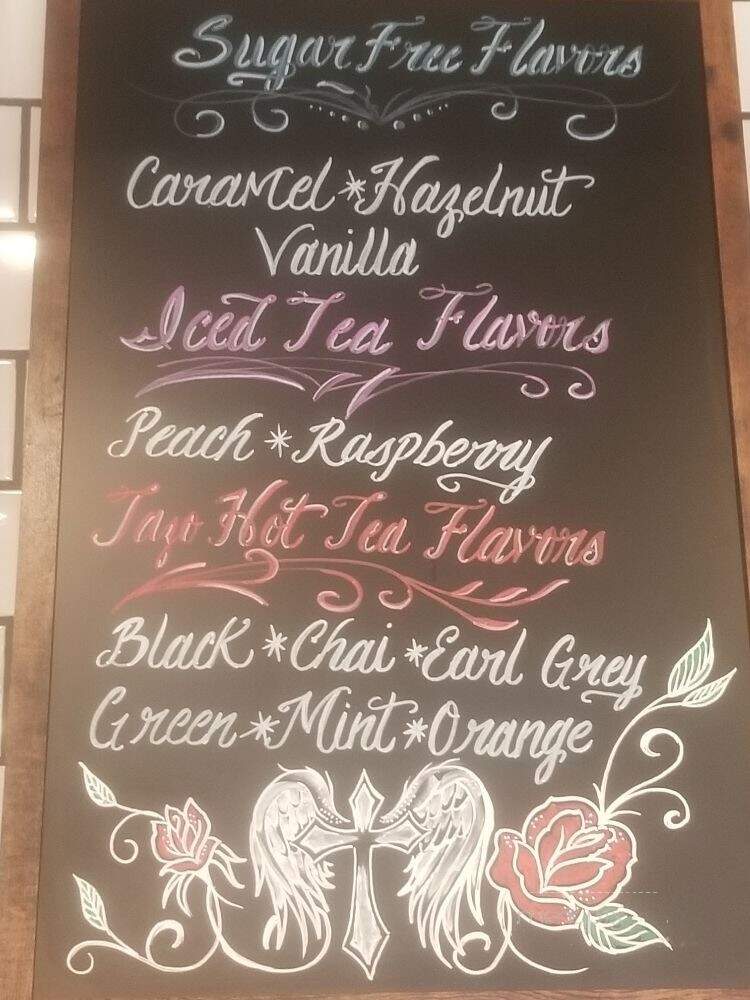 Sugar Free Flavors
Caramel * Hazelnut
Vanilla
Iced Tea Flavors
Peach * Raspberry
Tazo Hot Tea Flavors
Black * Chai * Earl Grey
Green * Mint * Orange